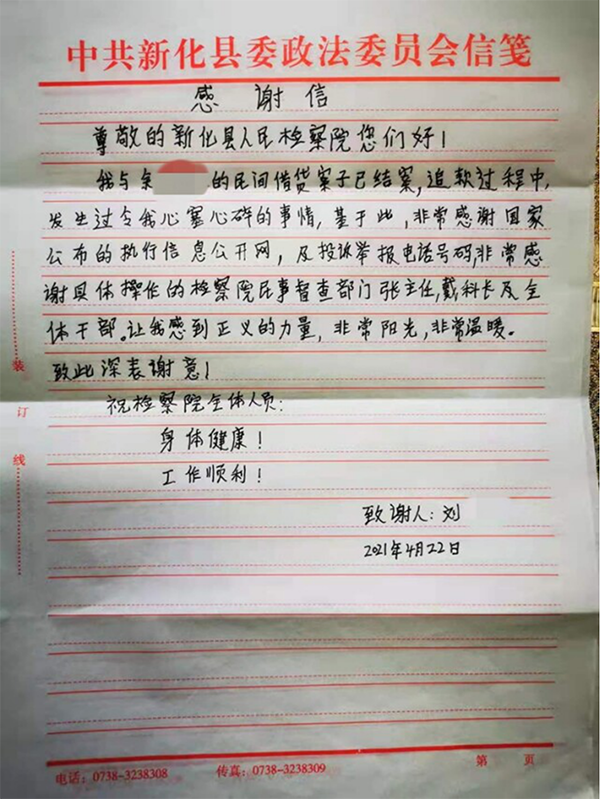 中共新化县委政法委员会信笺
感谢信
尊敬的新化县人民检察院您们好!
我与的民间借贷案子已结案,追款过程中,
发生过令我心塞心碎的事情,基于此,非常感谢国家
公布的执行信息公开网,及投诉举报电话号码,非常感
谢具体操作的检察院民事督查部门张主任,戴科长及全
体干部。让我感到正义的力量,非常阳光,非常温暖。
致此深表谢意!
祝检察院全体人员:
身体健康!
工作顺利!
致谢人:刘
2021年4月22日
装
订
线
电话:0738-3238308 传真:0738-3238309 第 页